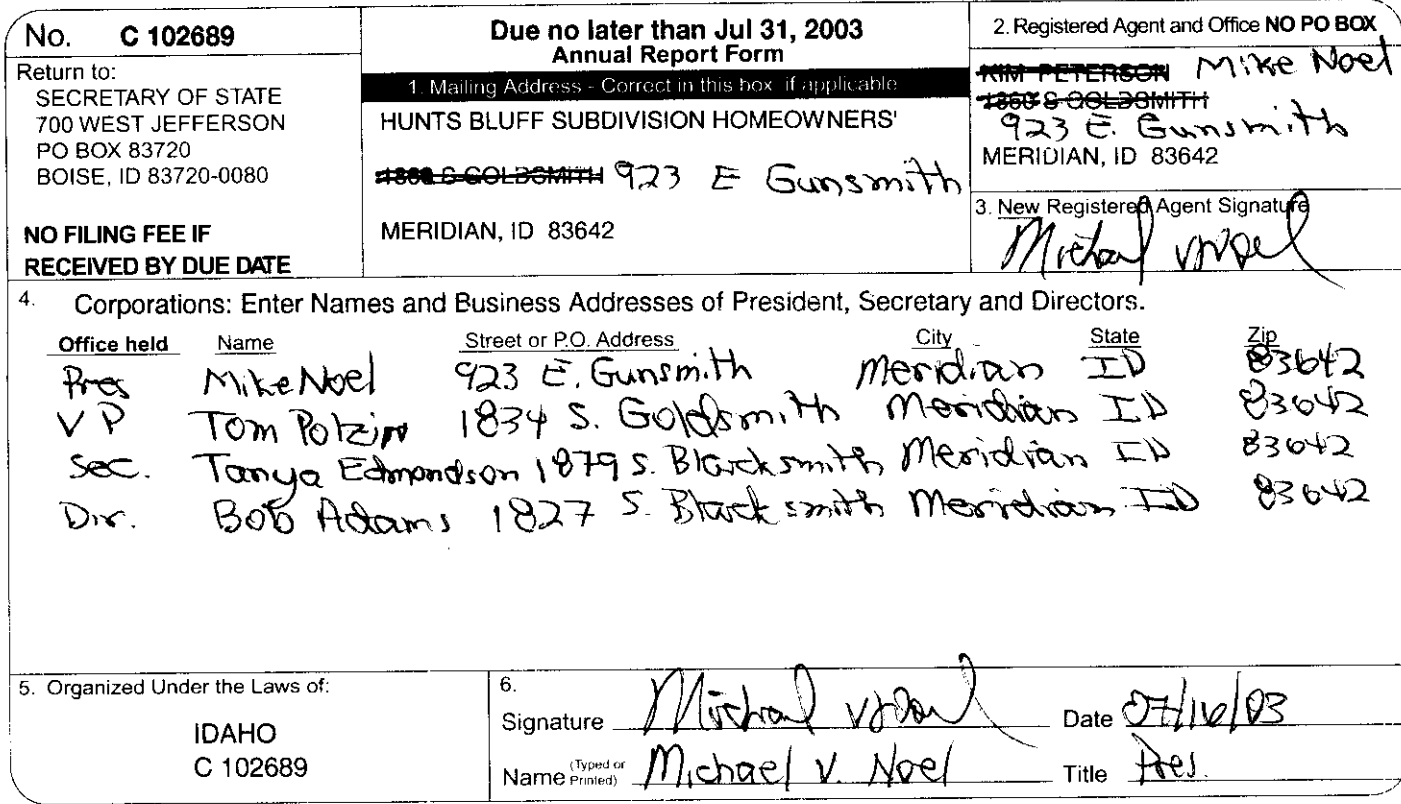 No. C 102689
Return to:
SECRETARY OF STATE
700 WEST JEFFERSON
PO BOX 83720
BOISE, ID 83720-0080
NO FILING FEE IF
RECEIVED BY DUE DATE
Due no later than Jul 31, 2003
Annual Report Form
1. Mailing Address - Correct in this box if applicable
HUNTS BLUFF SUBDIVISION HOMEOWNERS'
1860 S GOLDSMITH 923 E Gunsmith
MERIDIAN, ID 83642
2. Registered Agent and Office NO PO BOX
KIM PETERSON Mike Noel
1860 S GOLDSMITH
923 E. Gunsmith
MERIDIAN, ID 83642
3. New Registered Agent Signature
Michael V Noel
4. Corporations: Enter Names and Business Addresses of President, Secretary and Directors.
Office held Name Street or P.O. Address City State Zip
Pres Mike Noel 923 E. Gunsmith Meridian ID 83642
VP Tom Polzin 1834 S. Goldsmith Meridian ID 83642
Sec. Tanya Edmondson 1879 S. Blacksmith Meridian ID 83642
Dir. Bob Adams 1827 S. Blacksmith Meridian ID 83642
5. Organized Under the Laws of:
IDAHO
C 102689
6.
Signature Michael V Noel Date 07/16/03
Name (Typed or Printed) Michael V. Noel Title Pres.